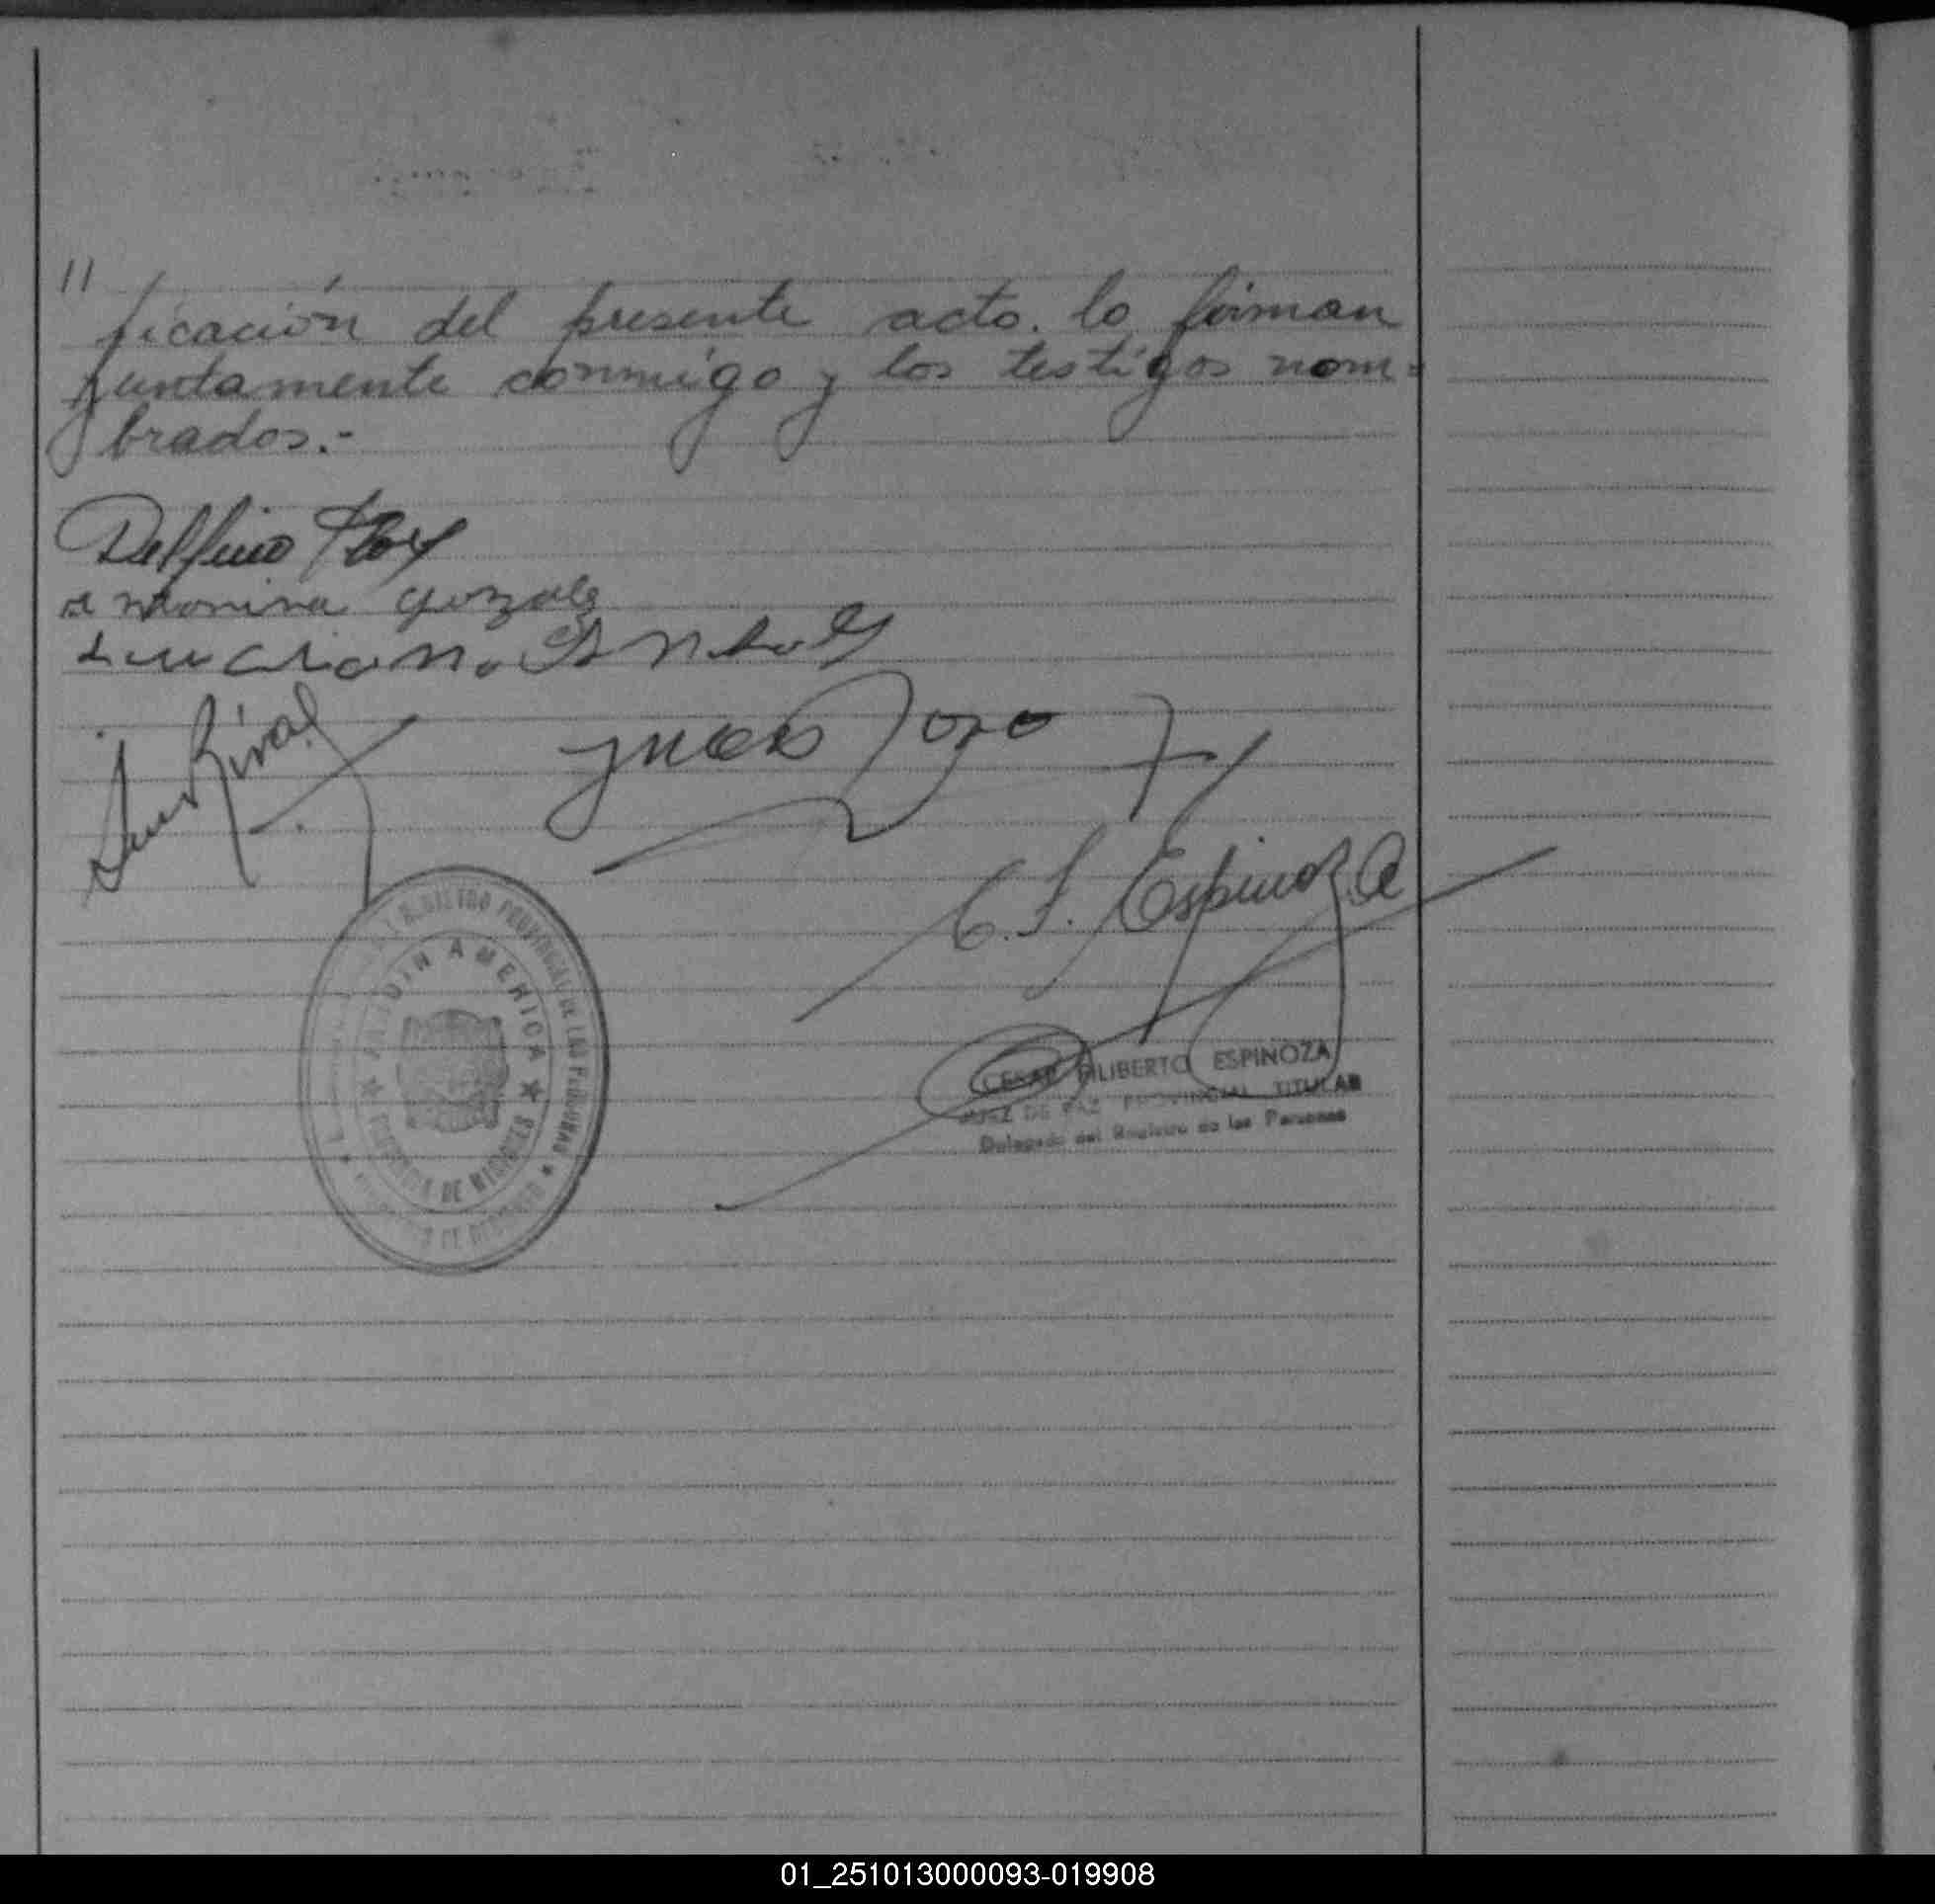 //
ficación del presente acto. lo firman
juntamente conmigo y los testigos nom=
brados.-
Delfino
antonina gonzale
Luciano
Luis Rival
Juan Pozo
C. F. Espinoza
REGISTRO PROVINCIAL DE LAS PERSONAS
AMERICA
DE
CESAR FILIBERTO ESPINOZA
JUEZ DE PAZ PROVINCIAL TITULAR
Delegado del Registro de las Personas
01_251013000093-019908